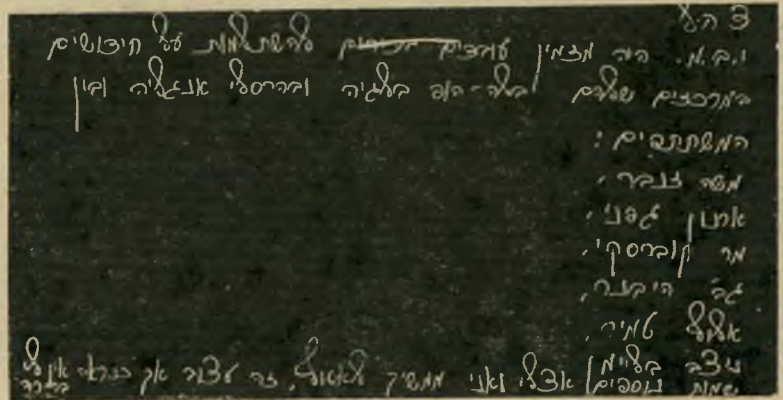 צה"ל
י.ב.מ. היה מזמין עובדים להשתלמות על חידושים
במרכזים שלהם בלה-הופ בלגיה ובהרסלי אנגליה ובין
המשתתפים:
משה זנבר,
ארנון גפני,
מר קוברסקי,
גב' היבנר,
אלוף טמיר,
ניצב בליימן
שמות נוספים אצלי ואני ממשיך לאסוף, זה עצור אך כנראה אין לי